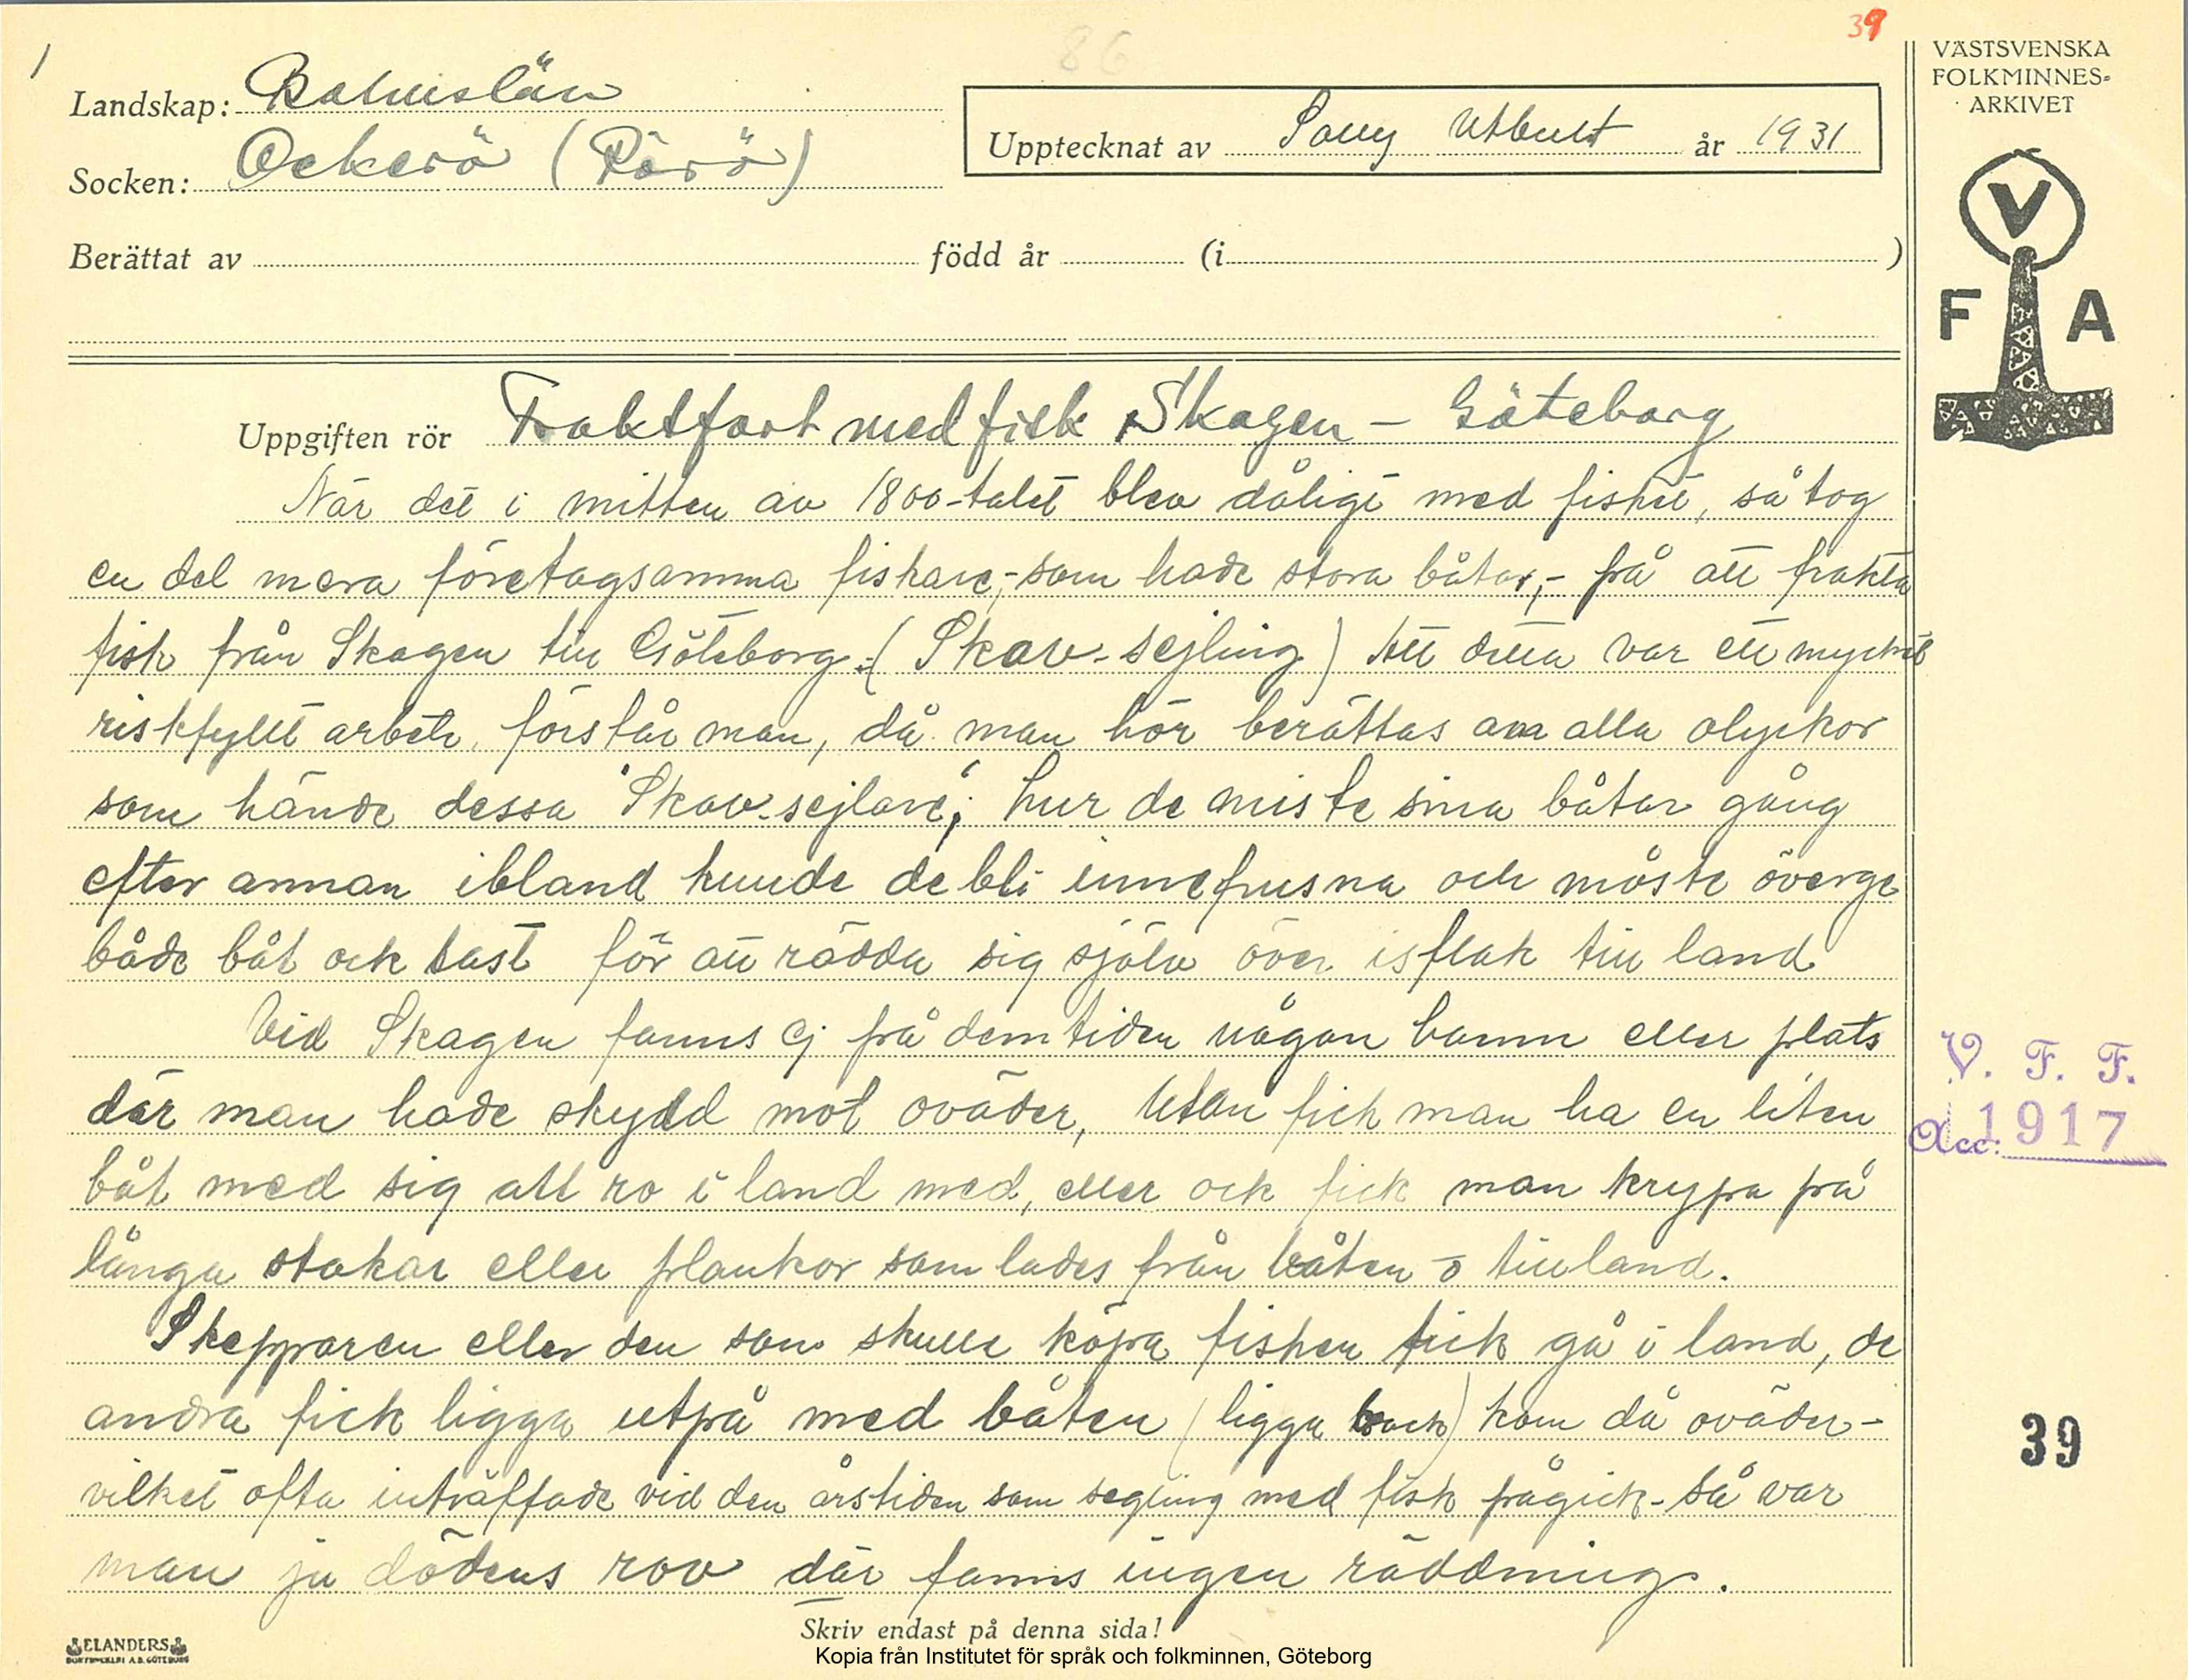 1
39
86
VÄSTSVENSKA
FOLKMINNES-
ARKIVET
Landskap: Bohuslän
Socken: Öckerö (Rörö)
Upptecknat av Sany Utbult år 1931
Berättat av född år (i )
V
F A
Uppgiften rör Fraktfart med fisk Skagen - Göteborg
När det i mitten av 1800-talet blev dåligt med fisket, så tog
en del mera företagsamma fiskare,- som hade stora båtar,- på att frakta
fisk från Skagen till Göteborg.( Skaw-sejling) Att detta var ett mycket
riskfyllt arbete, förstår man, då man hör berättas om alla olyckor
som hände dessa "Skaw-sejlare", hur de miste sina båtar gång
efter annan ibland kunde de bli innefrusna och måste överge
både båt ock last för att rädda sig själv över isflak till land
Vid Skagen fanns ej på dem tiden någon hamn eller plats
där man hade skydd mot oväder, Utan fick man ha en liten
båt med sig att ro i land med, eller ock fick man krypa på
långa stakar eller plankor som lades från båten o till land.
Skepparen eller den som skulle köpa fisken fick gå i land, de
andra fick ligga utpå med båten (ligga back) kom då oväder-
vilket ofta inträffade vid den årstiden som segling med fisk pågick - så var
man ju dödens rov där fanns ingen räddning.
V. F. F.
Acc: 1917
39
Skriv endast på denna sida!
ELANDERS
BOKTRYCKERI A.B. GÖTEBORG
Kopia från Institutet för språk och folkminnen, Göteborg